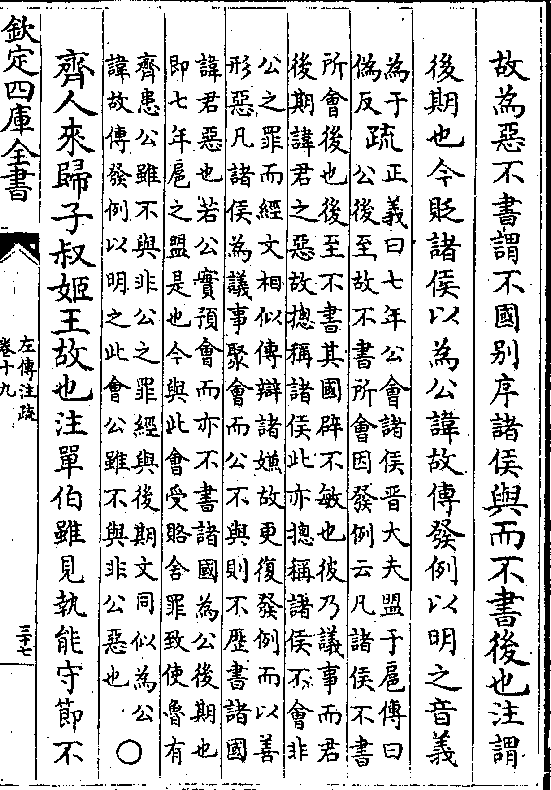 故為惡不書謂不國别序諸侯與而不書後也注謂
後期也今貶諸侯以為公諱故傳發例以明之音義
為于
偽反
疏
正義曰七年公會諸侯晉大夫盟于扈傳曰
公後至故不書所會因發例云凡諸侯不書
所會後也後至不書其國辟不敏也彼乃議事而君
後期諱君之惡故揔稱諸侯此亦揔稱諸侯不會非
公之罪而經文相似傳辯諸嫌故更復發例而以善
形惡凡諸侯為議事聚會而公不與則不歴書諸國
諱君惡也若公實預會而亦不書諸國為公後期也
即七年扈之盟是也今與此會受賂舍罪致使魯有
齊患公雖不與非公之罪經與後期文同似為公
諱故傳發例以明之此會公雖不與非公惡也
○
齊人來歸子叔姬王故也注單伯雖見執能守節不
欽定四庫全書
左傳注疏
卷十九
三十七